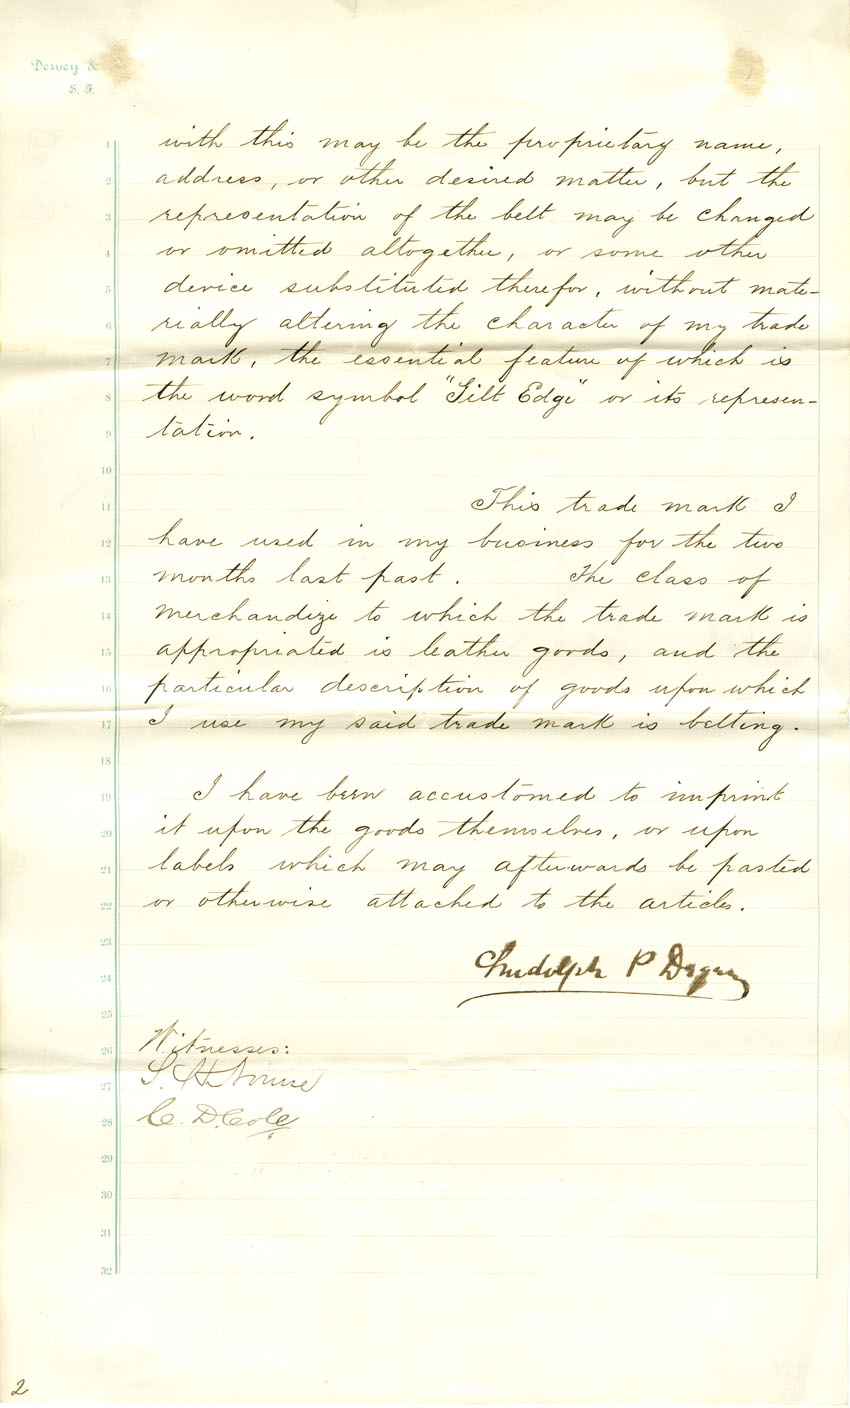 Dewey &
S. F.
1 with this may be the proprietary name,
2 address, or other desired matter, but the
3 representation of the belt may be changed
4 or omitted altogether, or some other
5 device substituted therefor, without mate-
6 rially altering the character of my trade
7 mark, the essential feature of which is
8 the word symbol "Gilt Edge" or its represen-
9 tation.
10
11 This trade mark I
12 have used in my business for the two
13 months last past. The class of
14 merchandize to which the trade mark is
15 appropriated is leather goods, and the
16 particular description of goods upon which
17 I use my said trade mark is belting.
18
19 I have been accustomed to imprint
20 it upon the goods themselves, or upon
21 labels which may afterwards be pasted
22 or otherwise attached to the articles.
23
24 Rudolph P Degen
25
26 Witnesses:
27 S. H. Nourse
28 C. D. Cole
29
30
31
32
2